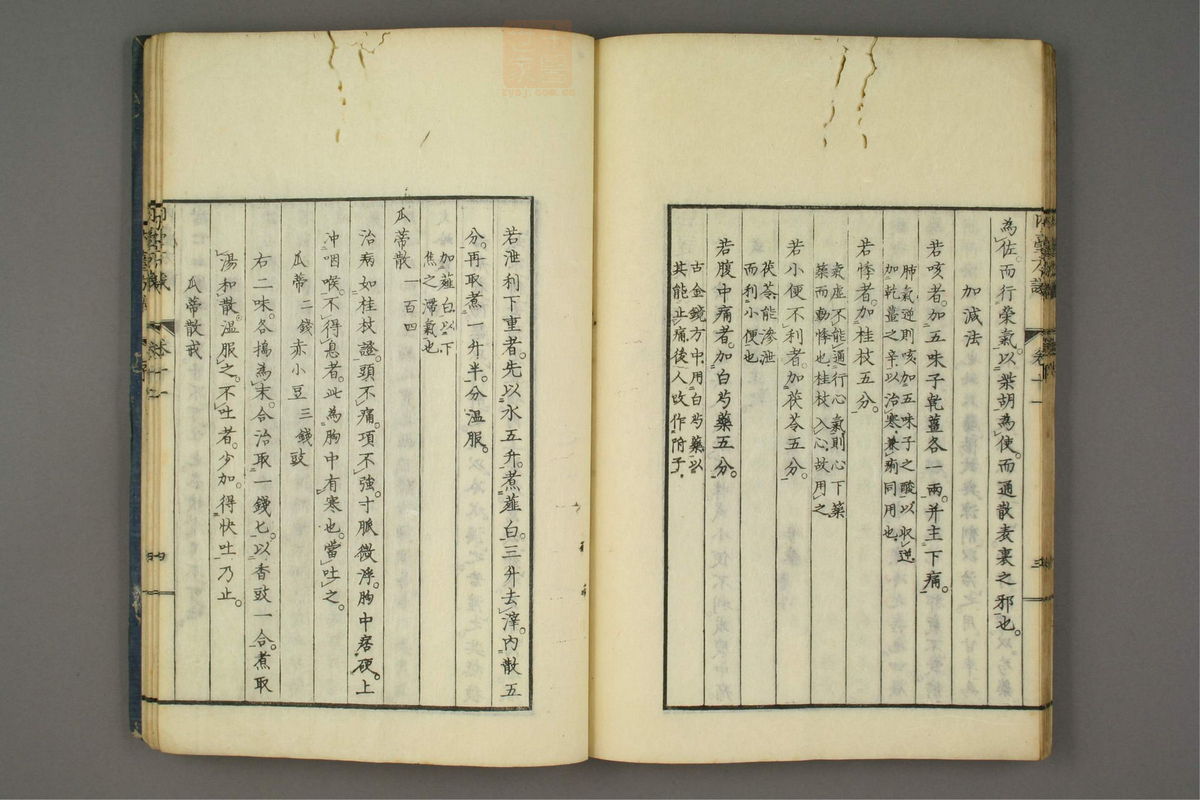 為佐。而行榮氣。以柴胡為使。而通散表裏之邪也。
加減法
若咳者。加五味子乾薑各一兩。并主下痢。
肺氣逆則咳加五味子之酸以收逆
加乾薑之辛以治寒兼痢同用也
若悸者。加桂枝五分。
氣虛不能通行心氣則心下藥
藥而動悸也桂枝入心故用之
若小便不利者。加茯苓五分。
茯苓能滲泄
而利小便也
若腹中痛者。加白芍藥五分。
古金鏡方中用白芍藥以
其能止痛後人改作附子
若泄利下重者。先以水五升。煮薤白。三升去滓。内散五
分。再取煮一升半。分溫服。
加薤白以下
焦之滯氣也
瓜蒂散 一百四
治病如桂枝證。頭不痛。項不強。寸脈微浮。胸中痞硬。上
沖咽喉。不得息者。此為胸中有寒也。當吐之。
瓜蒂二錢 赤小豆三錢 豉
右二味。各搗為末。合治取一錢匕。以香豉一合。煮取
湯和散。溫服之。不吐者。少加。得快吐乃止。
瓜蒂散戒